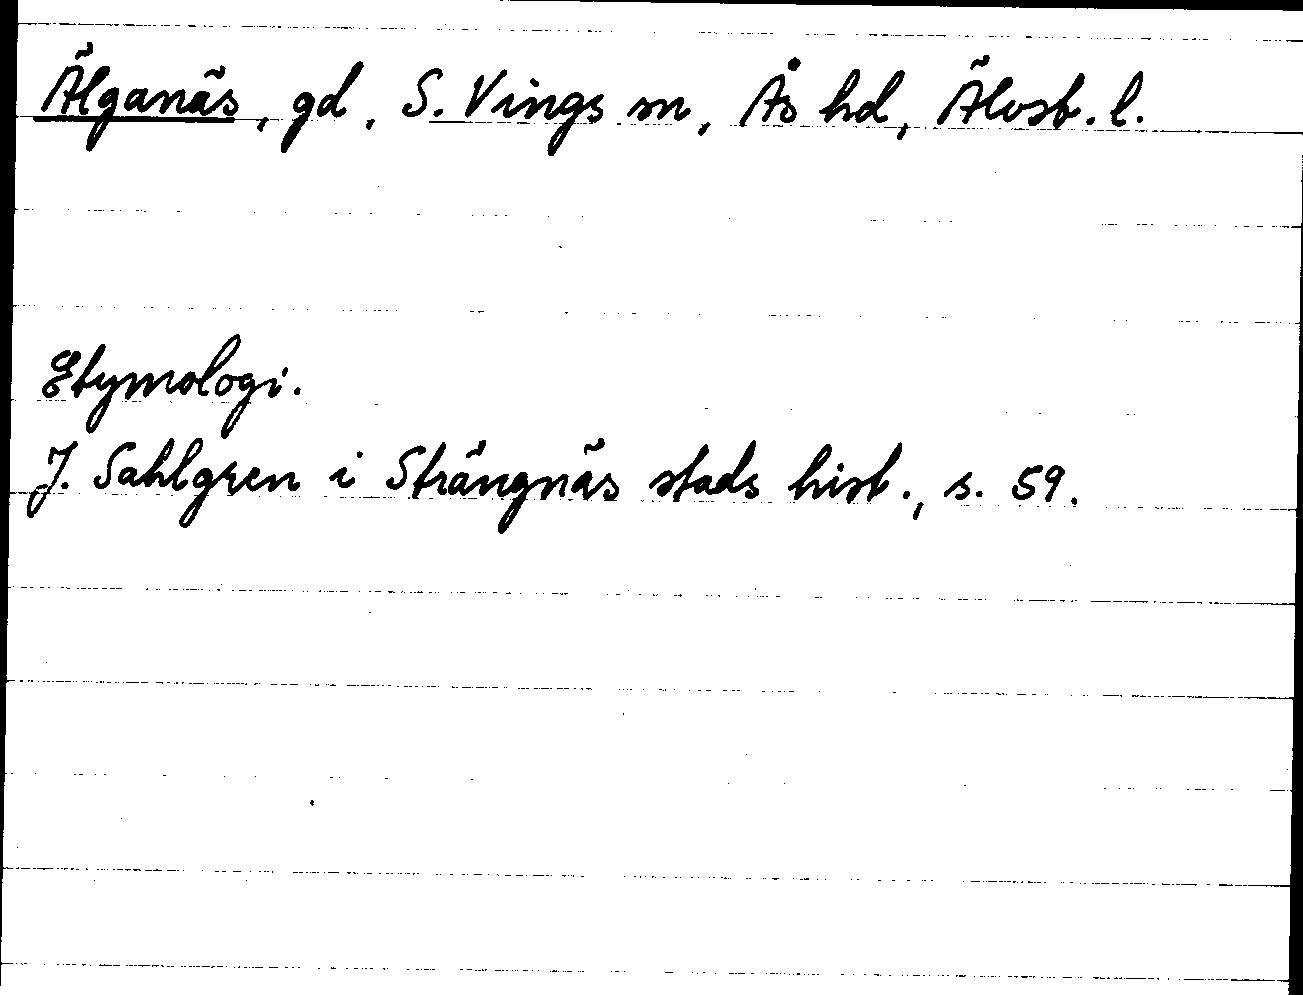 Älganäs, gd, S. Vings sn, Ås hd, Älvsb. l.
Etymologi.
J. Sahlgren i Strängnäs stads hist., s. 59.